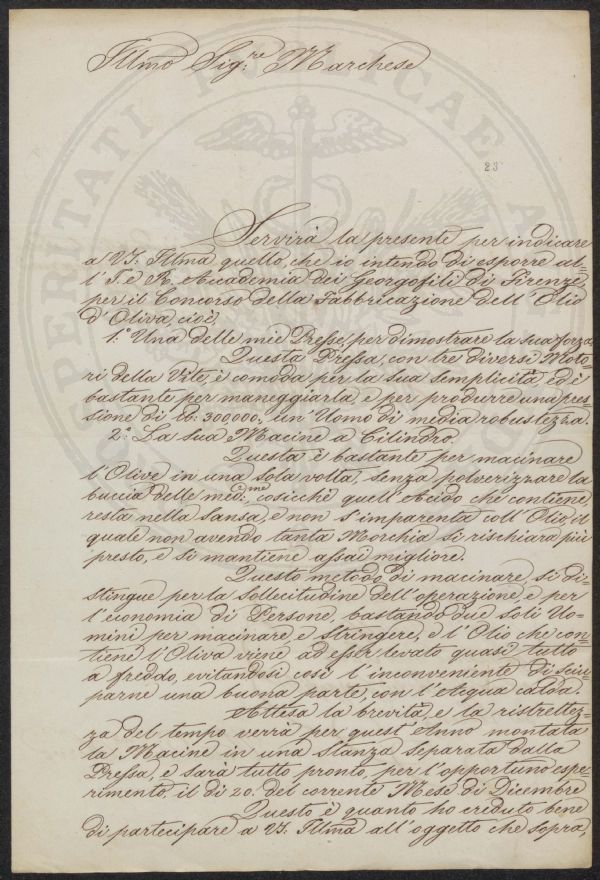 Illmo Sig:re Marchese
23
Servirà la presente per indicare
a VS: Illma quello, che io intendo di esporre al=
l' I. e R. Accademia dei Georgofili di Firenze
per il Concorso della Fabbricazione dell' Olio
d'Oliva, cioè,
1.° Una delle mie Presse, per dimostrare la sua forza.
Questa Pressa, con tre diversi Moto=
ri della Vite, è comoda per la sua semplicità, ed è
bastante per maneggiarla, e per produrre una pres=
sione di lb: 300000., un' Uomo di media robustezza.
2.° La sua Macine a Cilindro.
Questa è bastante per macinare
l'Olive in una sola volta, senza polverizzare la
buccia delle med:me, cosicchè quell'Acido che contiene
resta nella Sansa, e non s'imparenta coll'Olio, il
quale non avendo tanta Morchia si rischiara più
presto, e si mantiene assai migliore.
Questo metodo di macinare, si di=
stingue per la sollecitudine dell'operazione, e per
l'economia di Persone, bastando due soli Uo=
mini per macinare, e stringere, e l'Olio che con=
tiene l'Oliva viene ad esser levato quasi tutto
a freddo, evitandosi così l'inconveniente di sciu=
parne una buona parte, con l'Acqua calda.
Attesa la brevità, e la ristrettez=
za del tempo verrà per quest'Anno montata
la Macine in una Stanza separata dalla
Pressa, e sarà tutto pronto, per l'opportuno espe=
rimento, il dì 20. del corrente Mese di Dicembre
Questo è quanto ho creduto bene
di partecipare a VS. Illma all'oggetto che sopra,
PROSPERITATI PUBLICAE